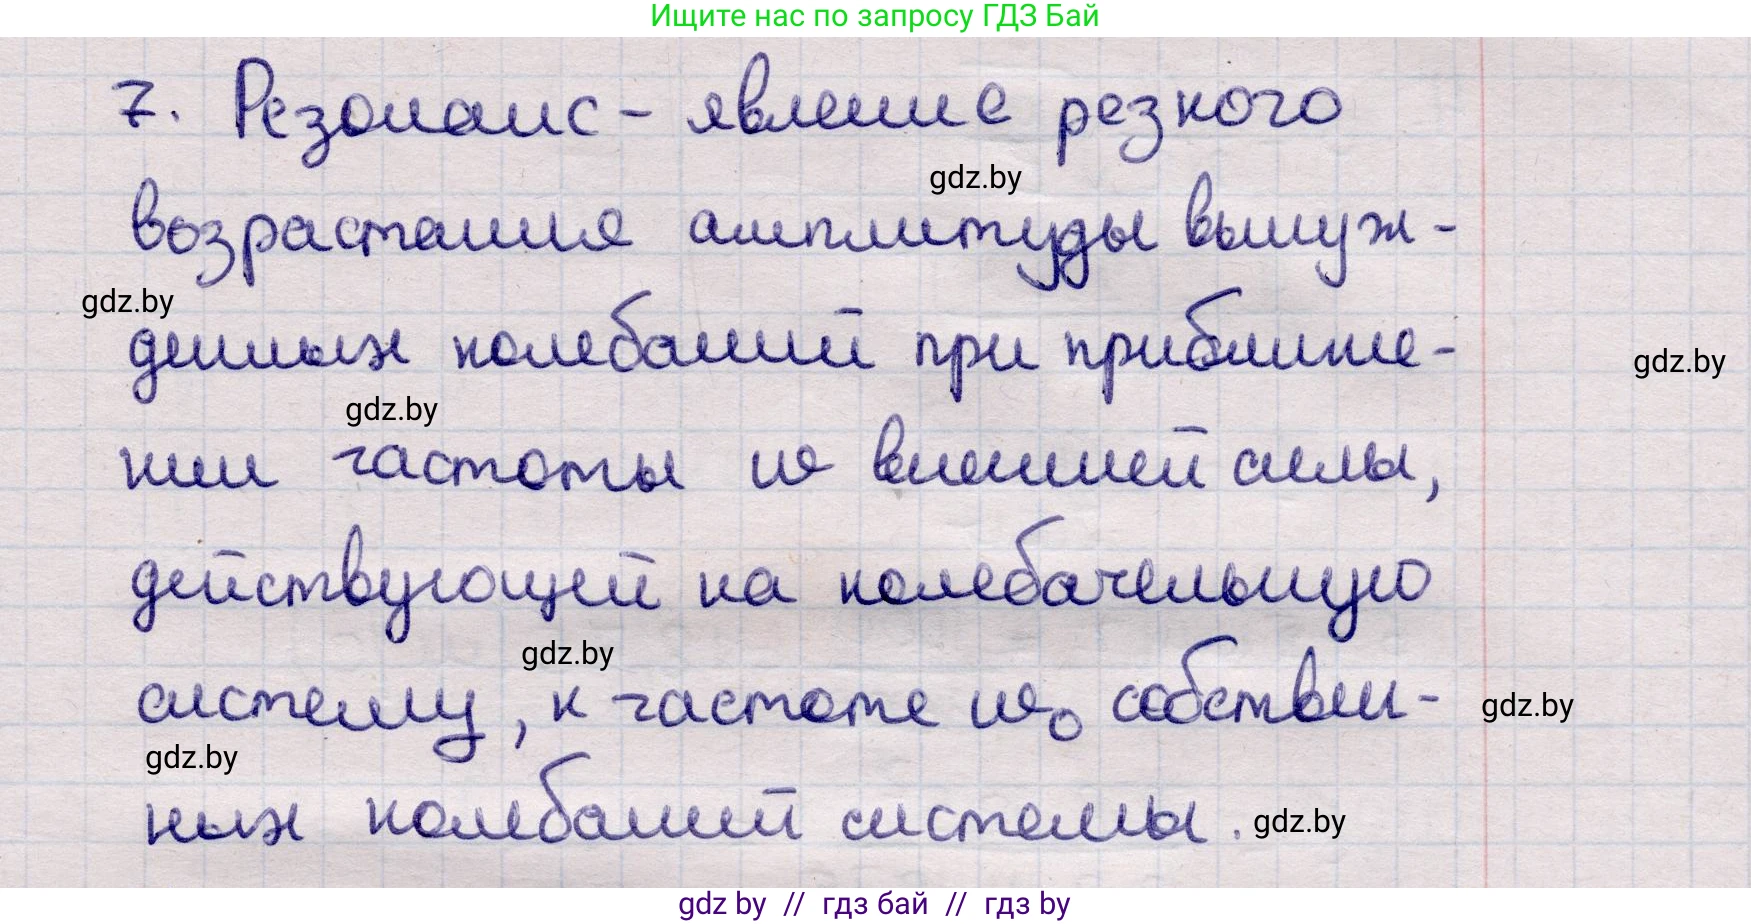 Ищите нас по запросу ГДЗ Бай
7. Резонанс - явление резкого
gdz.by
возрастания амплитуды вынуж-
gdz.by
денных колебаний при приближе-
gdz.by
gdz.by
нии частоты ω внешней силы,
действующей на колебательную
gdz.by
систему, к частоте ω₀ собствен-
gdz.by
gdz.by
ных колебаний системы.
gdz.by
gdz by // гдз бай // гдз by